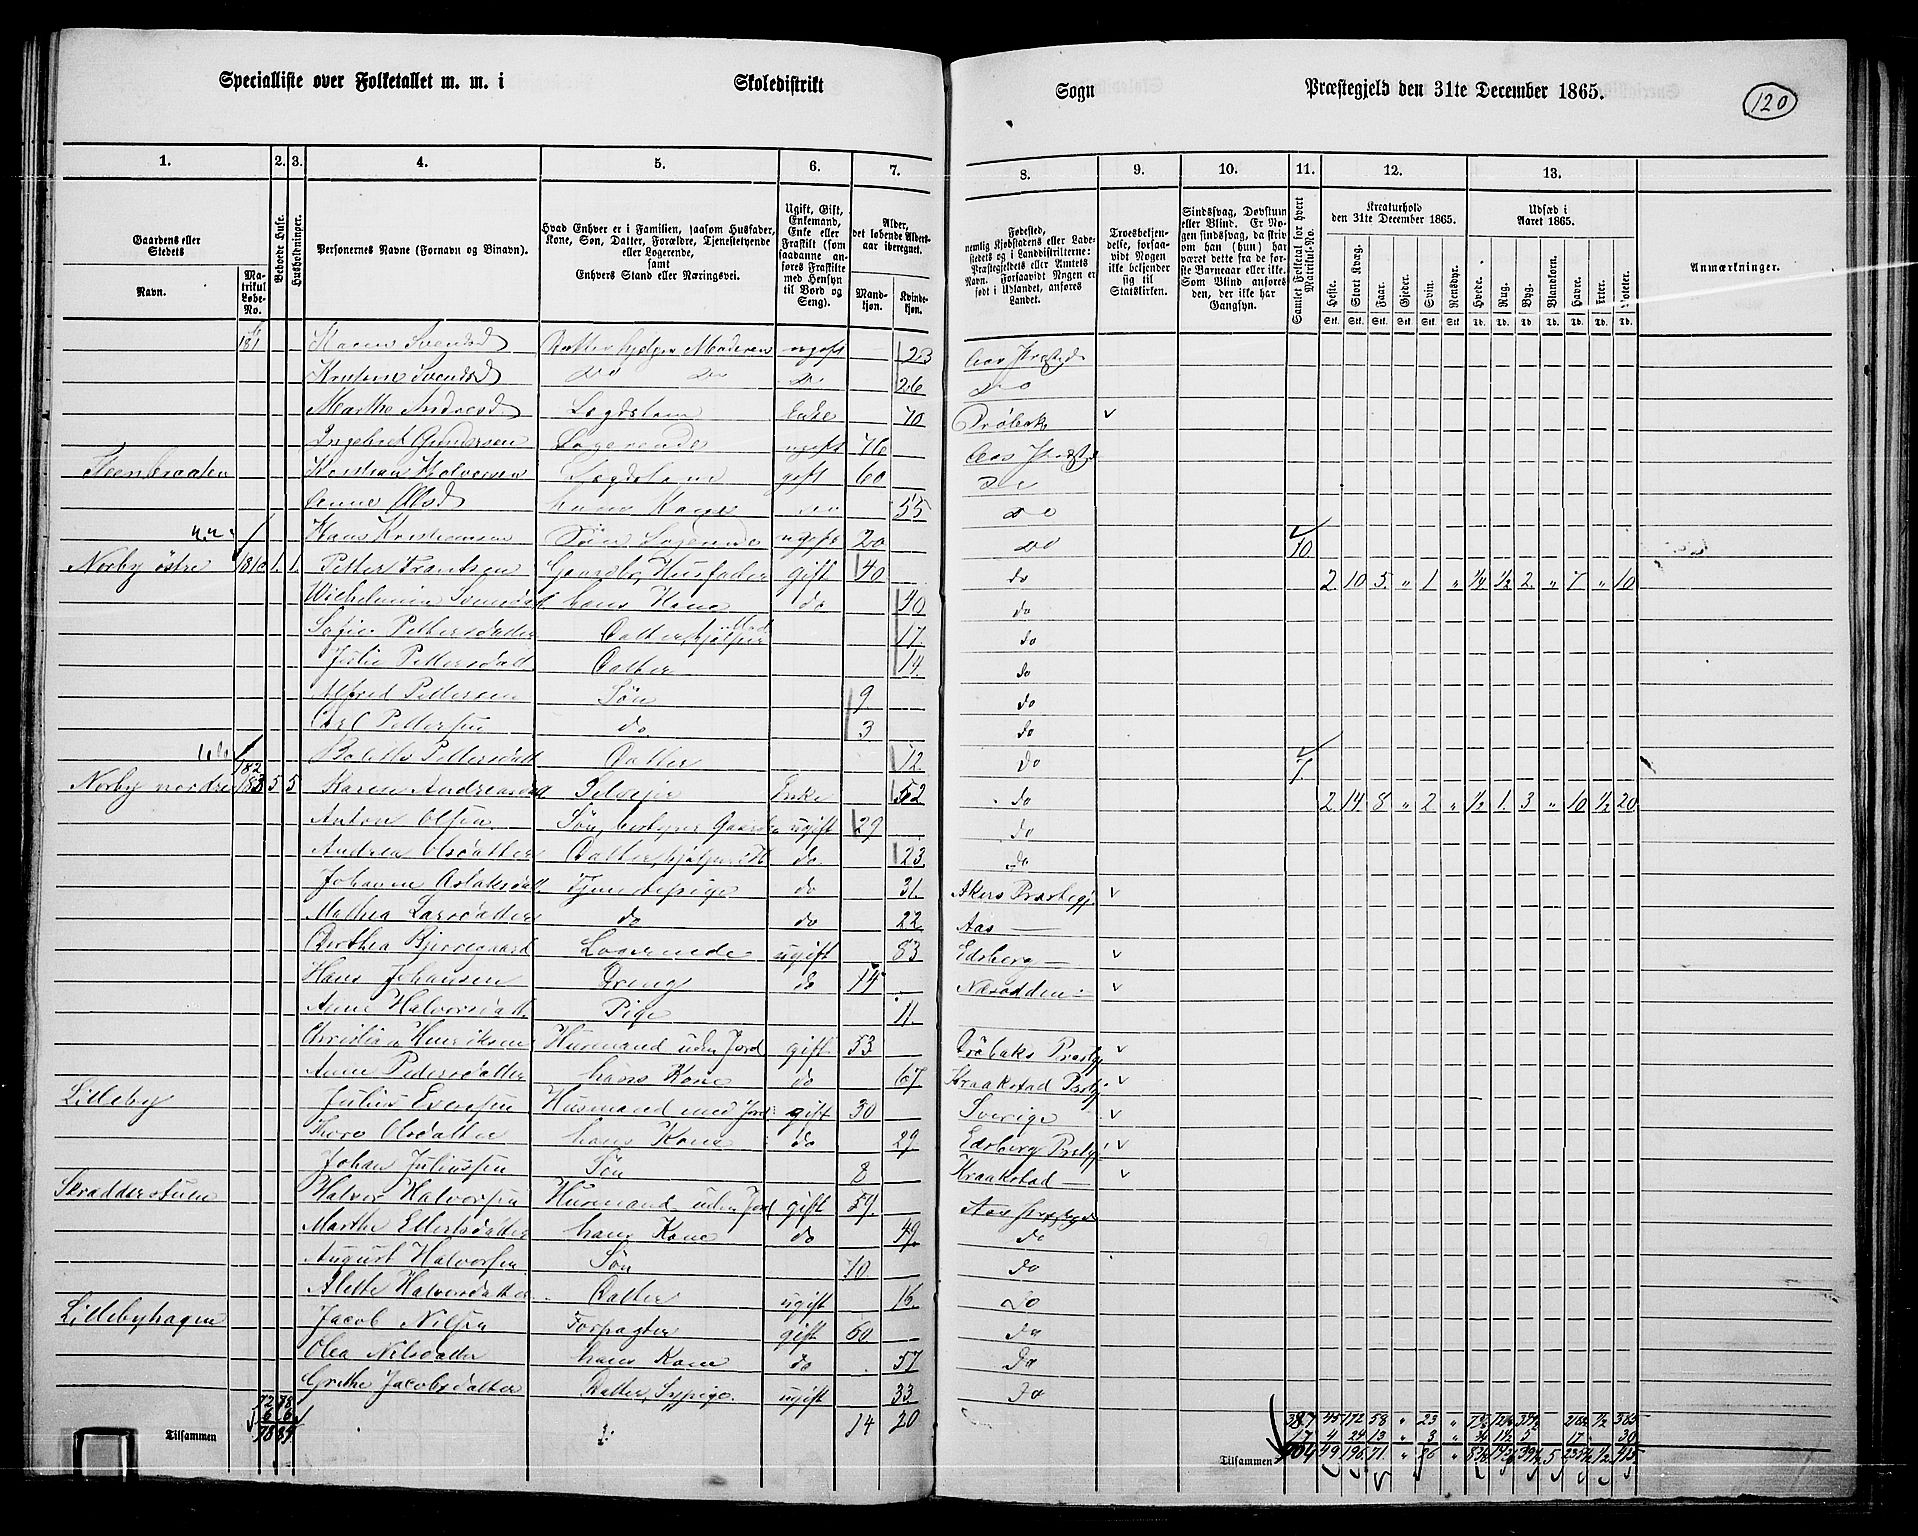 Specialliste over Folketallet m. m. i Skoledistrikt Sogn Præstegjeld den 31te December 1865. 120
1. 2. 3. 4. 5. 6. 7. 8. 9. 10. 11. 12. 13.
Gaardens eller Stedets
Navn.
Matrikul Løbe-No.
Beboede Huse.
Husholdninger.
Personernes Navne (Fornavn og Binavn).
Hvad Enhver er i Familien, saasom Husfader, Kone, Søn, Datter, Forældre, Tjenestetyende eller Logerende, samt Enhvers Stand eller Næringsvei.
Ugift, Gift, Enkemand, Enke eller Fraskilt (som saadanne anføres Fraskilte med Hensyn til Bord og Seng).
Alder, det løbende Aldersaar iberegnet.
Mandkjøn.
Kvindekjøn.
Fødested, nemlig Kjøbstadens eller Ladestedets og i Landdistrikterne: Præstegjeldets eller Amtets Navn. Forsaavidt Nogen er født i Udlandet, anføres Landet.
Troesbekjendelse, forsaavidt Nogen ikke bekjender sig til Statskirken.
Sindssvag, Døvstum eller Blind. Er Nogen sindssvag, da skrives Barneaar eller ikke. Som Blind anføres den, der ikke har Gangsyn.
Samlet Folketal for hvert Matrikul-No.
Kreaturhold den 31te December 1865.
Heste. Stort Kvæg. Faar. Gjeder. Svin. Rensdyr.
Udsæd i Aaret 1865.
Hvede. Rug. Byg. Blandkorn. Havre. Erter. Poteter.
Anmærkninger.
Karen Svendsd Datter hjelper Moderen ugift 23 Aas Præstgd
Kristine Svendsd Do Do Do 26 Do
Marthe Andreasd Lægdslem Enke 70 Drøbak
Ingebret Gundersen Logerende ugift 76 Aas Præstg
Steenbraaten Kristian Halvorsen Lægdslem gift 60 Do
Anne Olsd hans Kone Do 55 Do
Hans Kristiansen Søn Logerende ugift 20 Do 10
Norby østre 1. 1. Petter Frantsen Gaardbr, Husfader gift 40 do 2. 10 5. " 1 " ¼ ½ 2. " 7 " 10
hans Kone do 40 do
Sofie Pettersdatter Datter, hjelper Mod 17. do
Julie Pettersdatt Datter 14. do
Alfred Pettersen Søn 9 do
Carl Pettersen do 3 do
Pettersdatt Datter 12. do 7.
Norby nordre 182 183 5 5 Karen Andreasdatt Selveier Enke 52 do 2. 14. 8 " 2 " ½ 1. 3 " 10 ½ 20
Anton Olsen Søn, bestyrer Gaarden ugift 29 do
Andrea Olsdatter Datter, hjelper do. 23 do
Johanne Aslaksdatt Tjenestepige do 31. Akers Præstegj.
Mathea Larsdatter do do 22 Aas —
Dorthea Bjerregaard Logerende ugift 83 Edsberg —
Hans Johansen Dreng do 14 Næsodden —
Anne Halvorsdatt Pige 11.
Christian Henriksen Husmand uden Jord gift. 53 Drøbaks Præstgj
Anne Pedersdatter hans Kone do 67 Kraakstad Præstgj
Lilleby Julius Husmand med Jord gift 30 Sverige
Thore Olsdatter hans Kone do 29 Edsberg Præstgj
Johan Juliussen Søn 8 Kraakstad —
Skrædderstuen Halvor Halvorsen Husmand uden Jord gift 57. Aas Præstegj
Marthe Ellertsdatter hans Kone do 49. do
August Halvorsen Søn 10 do
Alette Halvorsdatter Datter ugift 16. do
Lillebyhagen Jacob Nilsen Forpagter gift 60 do
Olea Nilsdatter hans Kone do 57 do
Grethe Jacobsdatter Datter, Sypige ugift 33 do
Tilsammen 78 84 14 20
387 45 172 58 " 23 "
17 4 24 13 " 3 "
Tilsammen 404 49 196 71. " 26 "